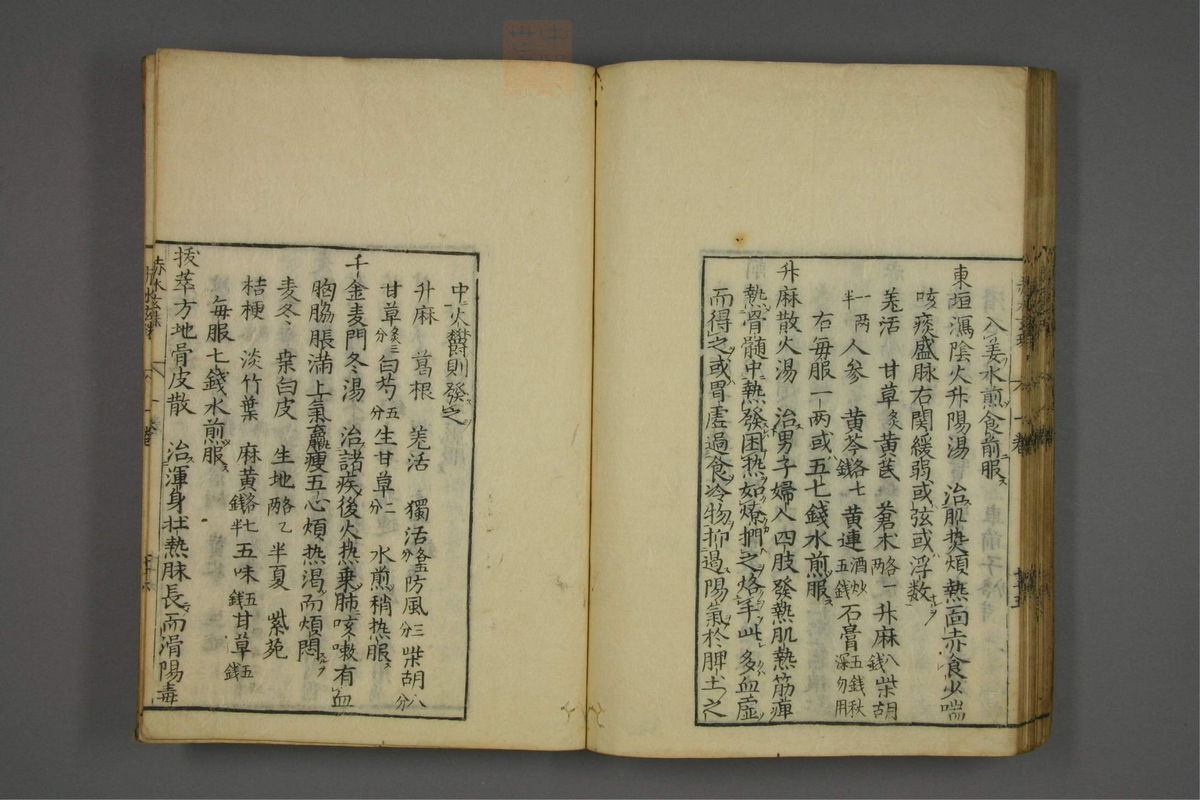 入姜水煎食前服ス
東垣瀉陰火升陽湯　治肌熱煩熱面赤食少喘
咳痰盛脉右関緩弱或弦或浮数
羌活　甘草炙黄芪　蒼朮各一两升麻八錢柴胡
一两半人参　黄芩各七錢黄連酒炒五錢石膏五錢秋深勿用
右毎服一两或五七錢水煎服ス
升麻散火湯　治男子婦人四肢發熱肌熱筋痺
熱骨髓中熱發困热如燎捫之烙手此多血虛
而得之或胃虛過食冷物抑遏陽氣於脾土之
中火欝則發之
升麻　葛根　羌活　獨活各五分防風三分柴胡八分
甘草炙三分白芍五分生甘草二分　水煎稍热服
千金麦門冬湯　治諸疾後火热乗肺咳嗽有血
胸脇脹滿上氣羸瘦五心煩热渴而煩悶
麦冬　桒白皮　生地各乙两半夏　紫苑
桔梗　淡竹葉　麻黄各七錢半五味五錢甘草五錢
毎服七錢水煎服
拔萃方地骨皮散　治渾身壮熱脉長而滑陽毒